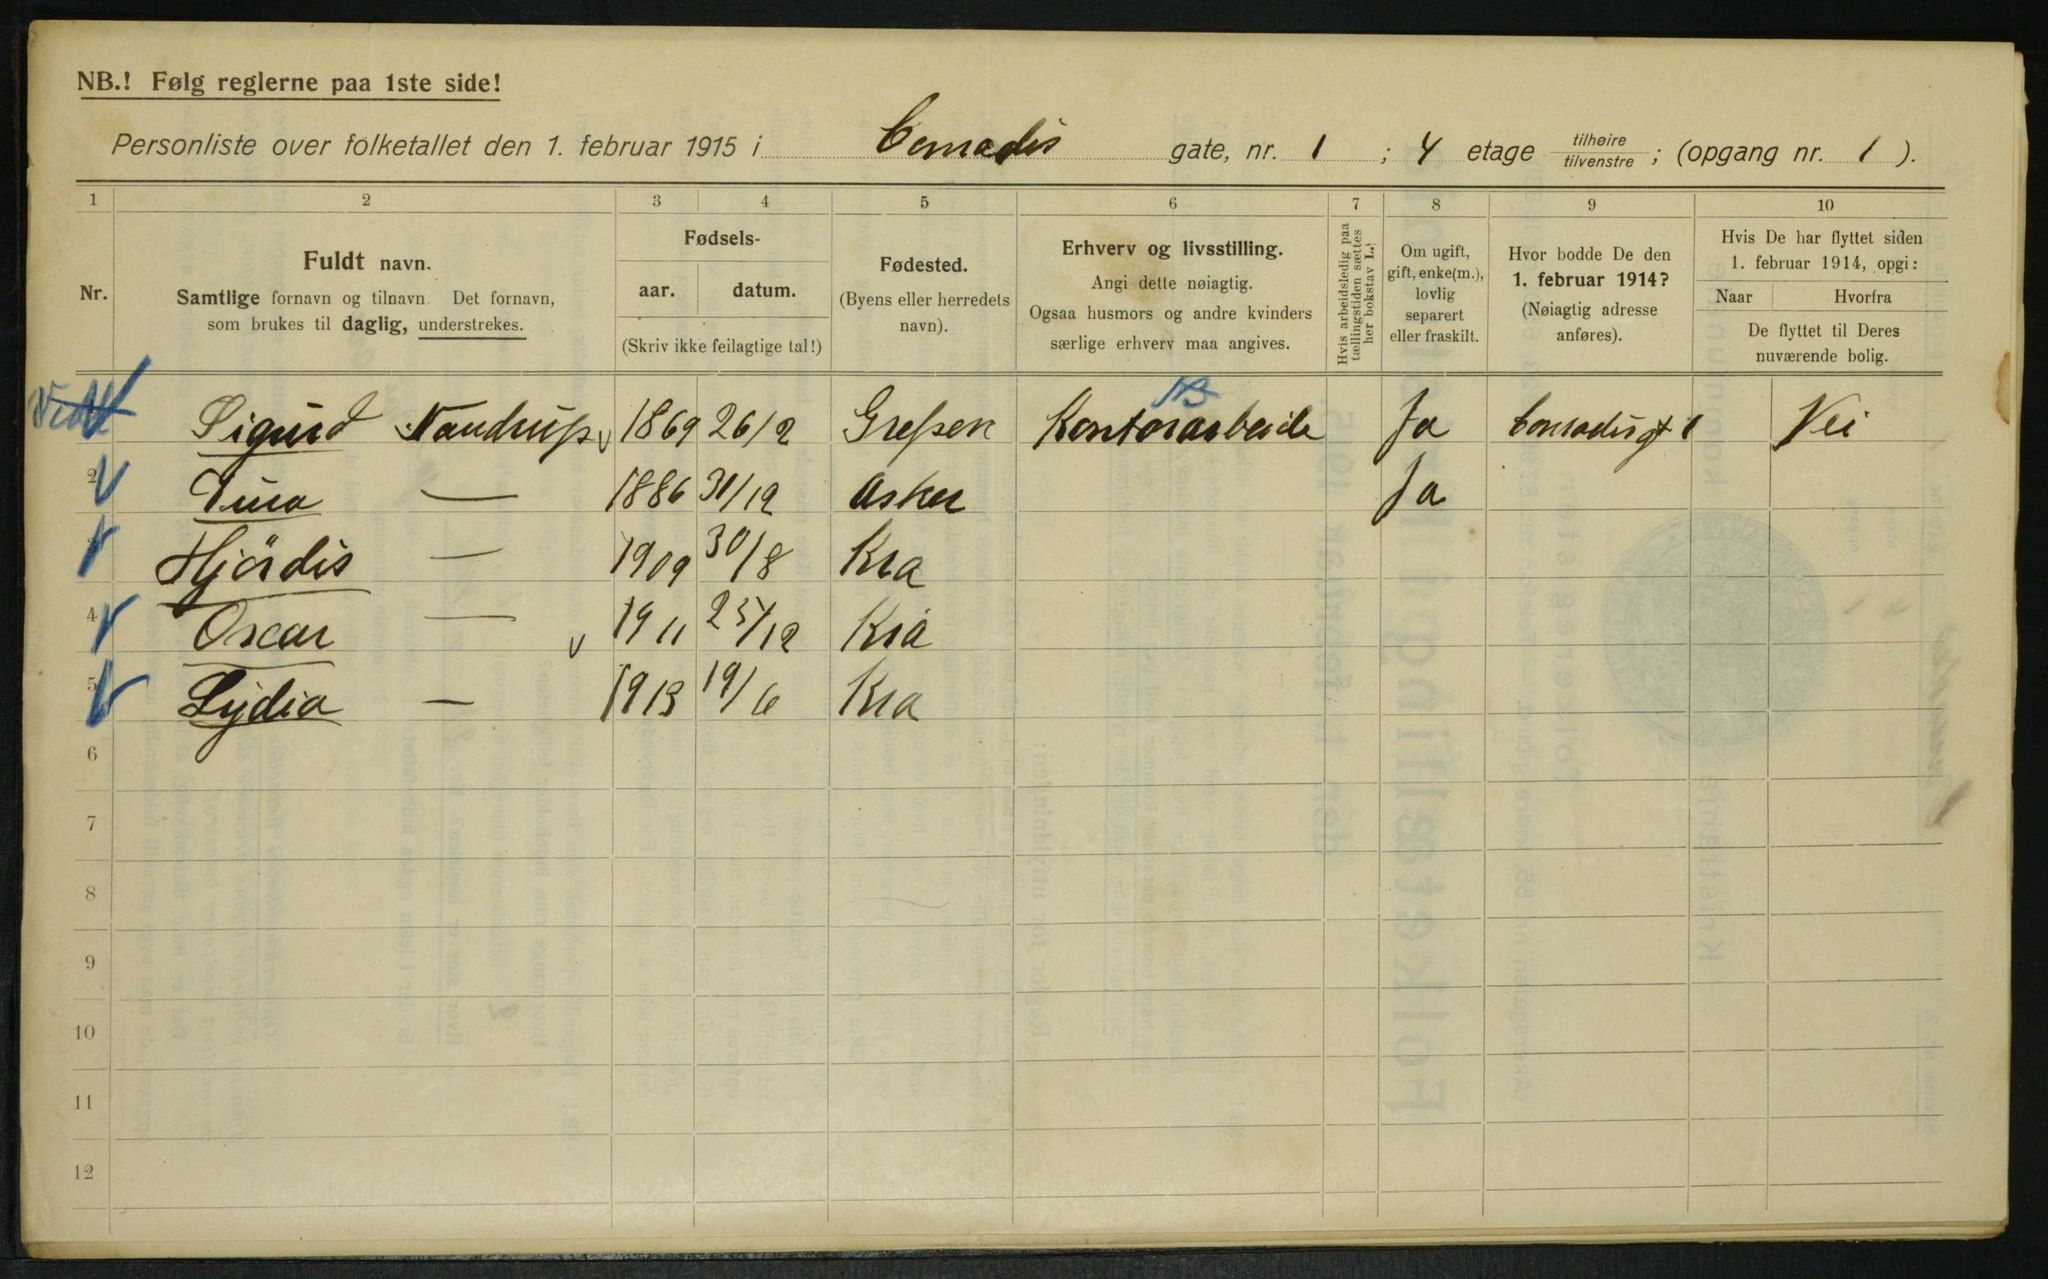 NB.! Følg reglerne paa 1ste side!
Personliste over folketallet den 1. februar 1915 i Conradis gate, nr. 1 ; 4 etage tilhøire tilvenstre ; (opgang nr. 1 ).
1 2 3 4 5 6 7 8 9 10
Nr.
Fuldt navn.
Samtlige fornavn og tilnavn. Det fornavn,
som brukes til daglig, understrekes.
Fødsels-
aar. datum.
(Skriv ikke feilagtige tal!)
Fødested.
(Byens eller herredets
navn).
Erhverv og livsstilling.
Angi dette nøiagtig.
Ogsaa husmors og andre kvinders
særlige erhverv maa angives.
Hvis arbeidsledig paa
tællingstiden sættes
her bokstav L.!
Om ugift,
gift, enke(m.),
lovlig
separert
eller fraskilt.
Hvor bodde De den
1. februar 1914?
(Nøiagtig adresse
anføres).
Hvis De har flyttet siden
1. februar 1914, opgi:
Naar Hvorfra
De flyttet til Deres
nuværende bolig.
Sigurd Nandrup 1869 26/2 Grefsen Kontorarbeide Ja Conradisgt 1 Nei
2 — 1886 31/12 Asker Ja
Hjördis — 1909 30/8 Kra
4 Oscar — 1911 25/12 Kra
5 Lydia — 1913 19/6 Kra
6
7
8
9
10
11
12